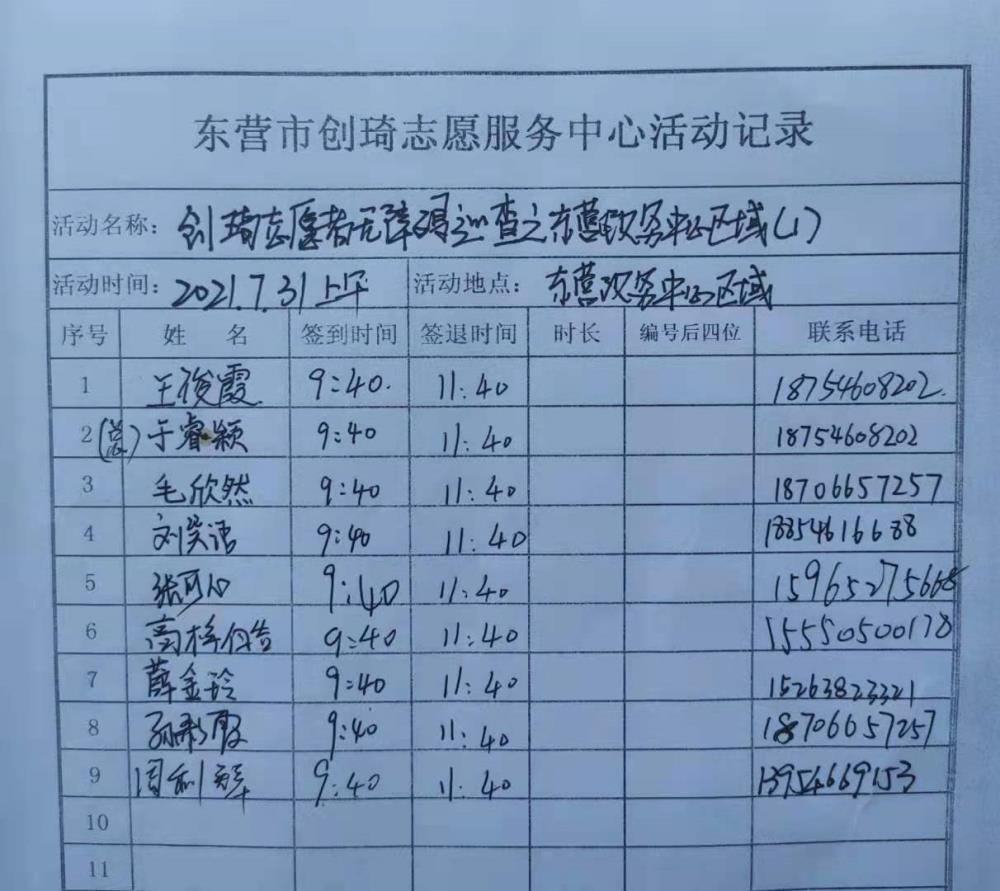 东营市创琦志愿服务中心活动记录
活动名称: 创琦志愿者无障碍巡查之东营政务中心区域(1)
活动时间: 2021.7.31上午 活动地点: 东营政务中心区域
序号 姓 名 签到时间 签退时间 时长 编号后四位 联系电话
1 王俊霞 9:40. 11:40 18754608202.
2 于睿颖 9:40 11:40 18754608202
3 毛欣然 9:40 11:40 18706657257
4 刘笑语 9:40 11:40 18854616688
5 张可心 9:40 11:40 15965275668
6 高梓 9:40 11:40 15550500178
7 薛金玲 9:40 11:40 15263823321
8 孙彩霞 9:40 11:40 18706657257
9 周利 9:40 11:40 13954669153
10
11